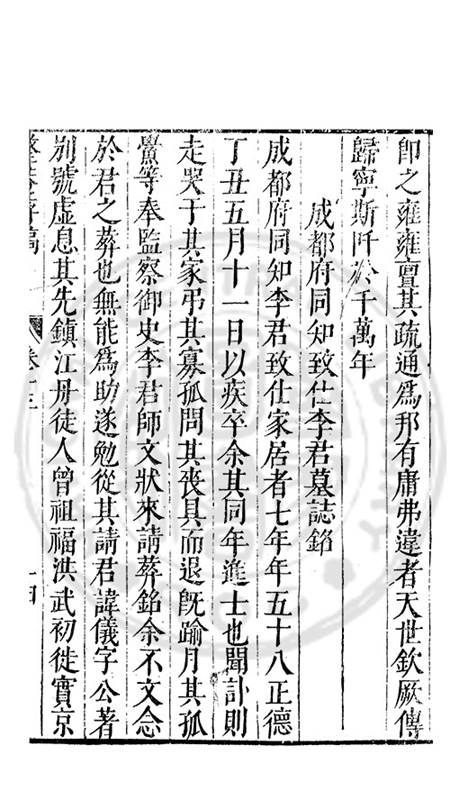 卽之雍雍亶其疏通爲邦有庸弗違者天世欽厥傳
歸寧斯阡於千萬年
成都府同知致仕李君墓誌銘
成都府同知李君致仕家居者七年年五十八正德
丁丑五月十一日以疾卒余其同年進士也聞訃則
走哭于其家弔其寡孤問其喪具而退旣踰月其孤
黌等奉監察御史李君師文狀來請葬銘余不文念
於君之葬也無能爲助遂勉從其請君諱儀字公著
別號虛息其先鎮江丹徒人曾祖福洪武初徙實京
卷十三
十四